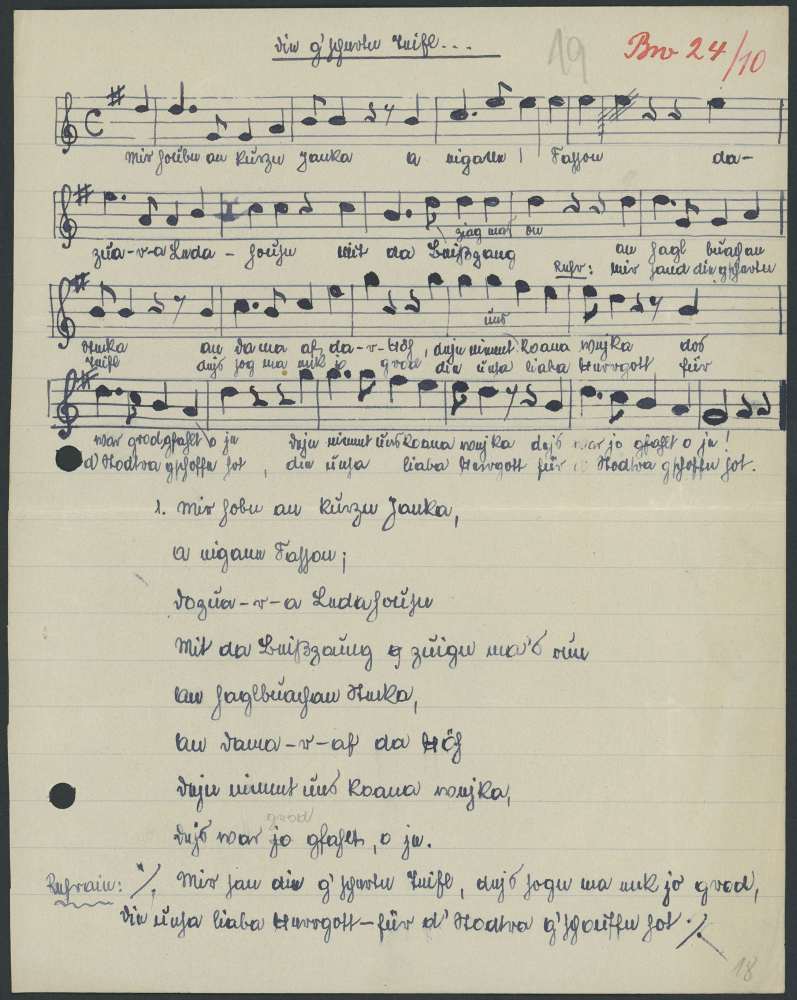 die g'scherten Teifl...
19
Bw 24/10
Mir houbn an kurzn Janka a eigane Fasson da-
zua-r-a Leda-housn mit da Beißzang ziag mas on an haglbuachan
Refr: mir sand die gscherten
Stecka an dama af da-r-Höh, dejn nimmt uns koana wejka dos
Teifl dejs sog ma enk jo grod die unsa liaba Herrgott für
war grod gfahlt o je dejn nimmt uns koana wejka dejs war jo gfahlt o je!
d' Stodtra gschoffn hot, die unsa liaba Herrgott für d' Stodtra gschoffn hot.
1. Mir hobn an kurzn Janka,
a eigane Fasson;
dozua-r-a Ledahousn
Mit da Beißzaung zuign ma's oun
an haglbuachan Stecka,
an dama-r-af da Höh
dejn nimmt uns koana wejka,
grod
dejs war jo gfahlt, o je.
Refrain: ·/. Mir san die g'scherten Teifl, dejs sogn ma enk jo grod,
die unsa liaba Herrgott-für d' Stodtra g'schouffn hot ·/.
18